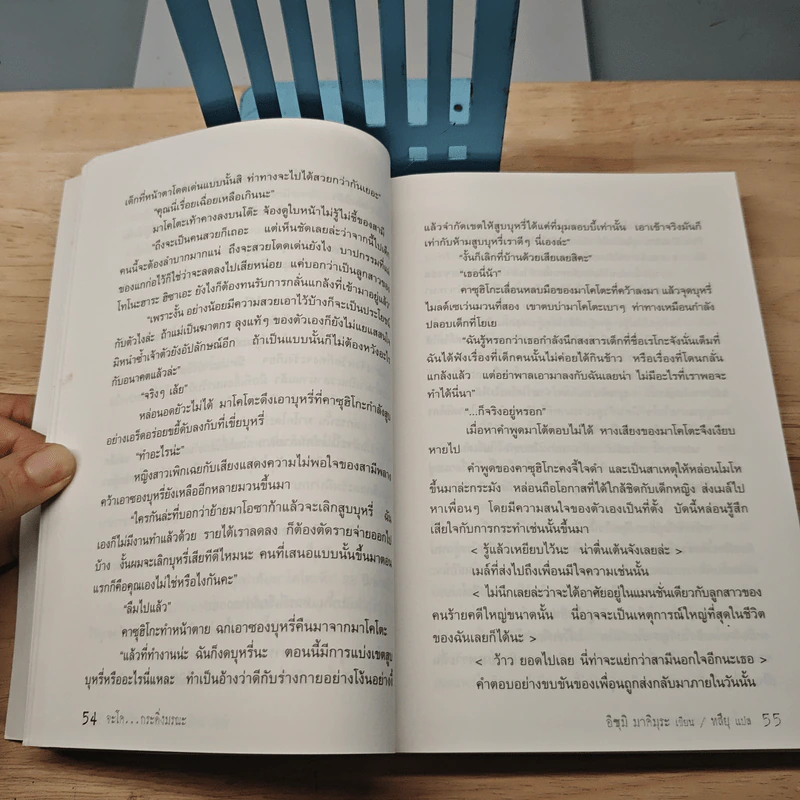 เด็กที่หน้าตาโดดเด่นแบบนั้นสิ ท่าทางจะไปได้สวยกว่ากันเยอะ"
"คุณนี่เรื่อยเฉื่อยเหลือเกินนะ"
มาโคโตะเท้าคางลงบนโต๊ะ จ้องดูใบหน้าไม่รู้ไม่ชี้ของสามี
"ถึงจะเป็นคนสวยก็เถอะ แต่เห็นชัดเลยล่ะว่าจากนี้ไปเด็ก
คนนี้จะต้องลำบากมากแน่ ถึงจะสวยโดดเด่นยังไง บาปกรรมที่แม่
ของแกก่อไว้ก็ใช่ว่าจะลดลงไปเสียหน่อย แค่บอกว่าเป็นลูกสาวของ
โทโนะฮาระ ฮิซาเอะ ยังไงก็ต้องทนรับการกลั่นแกล้งที่เข้ามาอยู่แล้ว"
"เพราะงั้น อย่างน้อยมีความสวยเอาไว้บ้างก็จะเป็นประโยชน์
กับตัวไงล่ะ ถ้าแม่เป็นฆาตกร ลุงแท้ๆ ของตัวเองก็ยังไม่แยแสสนใจ
มิหนำซ้ำเจ้าตัวยังอัปลักษณ์อีก ถ้าเป็นแบบนั้นก็ไม่ต้องหวังอะไร
กับอนาคตแล้วล่ะ"
"จริงๆ เล้ย"
หล่อนอดยัวะไม่ได้ มาโคโตะดึงเอาบุหรี่ที่คาซุฮิโกะกำลังสูบ
อย่างเอร็ดอร่อยขยี้ดับลงกับที่เขี่ยบุหรี่
"ทำอะไรน่ะ"
หญิงสาวเพิกเฉยกับเสียงแสดงความไม่พอใจของสามีพลาง
คว้าเอาซองบุหรี่ยังเหลืออีกหลายมวนขึ้นมา
"ใครกันล่ะที่บอกว่าย้ายมาโอซาก้าแล้วจะเลิกสูบบุหรี่ ฉัน
เองก็ไม่มีงานทำแล้วด้วย รายได้เราลดลง ก็ต้องตัดรายจ่ายออกไป
บ้าง งั้นผมจะเลิกบุหรี่เสียทีดีไหมนะ คนที่เสนอแบบนั้นขึ้นมาตอน
แรกก็คือคุณเองไม่ใช่หรือไงกันคะ"
"ลืมไปแล้ว"
คาซุฮิโกะทำหน้าตาย ฉกเอาซองบุหรี่คืนมาจากมาโคโตะ
"แล้วที่ทำงานน่ะ ฉันก็งดบุหรี่นะ ตอนนี้มีการแบ่งเขตสูบ
บุหรี่หรืออะไรนี่แหละ ทำเป็นอ้างว่าดีกับร่างกายอย่างโง้นอย่างงี้
54 จะโค...กระดิ่งมรณะ
แล้วจำกัดเขตให้สูบบุหรี่ได้แค่ที่มุมลอบบี้เท่านั้น เอาเข้าจริงมันก็
เท่ากับห้ามสูบบุหรี่เราดีๆ นี่เองล่ะ"
"งั้นก็เลิกที่บ้านด้วยเสียเลยสิคะ"
"เธอนี่น้า"
คาซุฮิโกะเลื่อนหลบมือของมาโคโตะที่คว้าลงมา แล้วจุดบุหรี่
ไมลด์เซเว่นมวนที่สอง เขาตบบ่ามาโคโตะเบาๆ ท่าทางเหมือนกำลัง
ปลอบเด็กที่โยเย
"ฉันรู้หรอกว่าเธอกำลังนึกสงสารเด็กที่ชื่อเรโกะจังนั่นเต็มที่
ฉันได้ฟังเรื่องที่เด็กคนนั้นไม่ค่อยได้กินข้าว หรือเรื่องที่โดนกลั่น
แกล้งแล้ว แต่อย่าพาลเอามาลงกับฉันเลยน่า ไม่มีอะไรที่เราพอจะ
ทำได้นี่นา"
"...ก็จริงอยู่หรอก"
เมื่อหาคำพูดมาโต้ตอบไม่ได้ หางเสียงของมาโคโตะจึงเงียบ
หายไป
คำพูดของคาซุฮิโกะคงจี้ใจดำ และเป็นสาเหตุให้หล่อนโมโห
ขึ้นมาล่ะกระมัง หล่อนถือโอกาสที่ได้ใกล้ชิดกับเด็กหญิง ส่งเมล์ไป
หาเพื่อนๆ โดยมีความสนใจของตัวเองเป็นที่ตั้ง บัดนี้หล่อนรู้สึก
เสียใจกับการกระทำเช่นนั้นขึ้นมา
< รู้แล้วเหยียบไว้นะ น่าตื่นเต้นจังเลยล่ะ >
เมล์ที่ส่งไปถึงเพื่อนมีใจความเช่นนั้น
< ไม่นึกเลยล่ะว่าจะได้อาศัยอยู่ในแมนชั่นเดียวกับลูกสาวของ
คนร้ายคดีใหญ่ขนาดนั้น นี่อาจจะเป็นเหตุการณ์ใหญ่ที่สุดในชีวิต
ของฉันเลยก็ได้นะ >
< ว้าว ยอดไปเลย นี่ท่าจะแย่กว่าสามีนอกใจอีกนะเธอ >
คำตอบอย่างขบขันของเพื่อนถูกส่งกลับมาภายในวันนั้น
อิซุมิ มาคิมุระ เขียน / ทสึยุ แปล 55